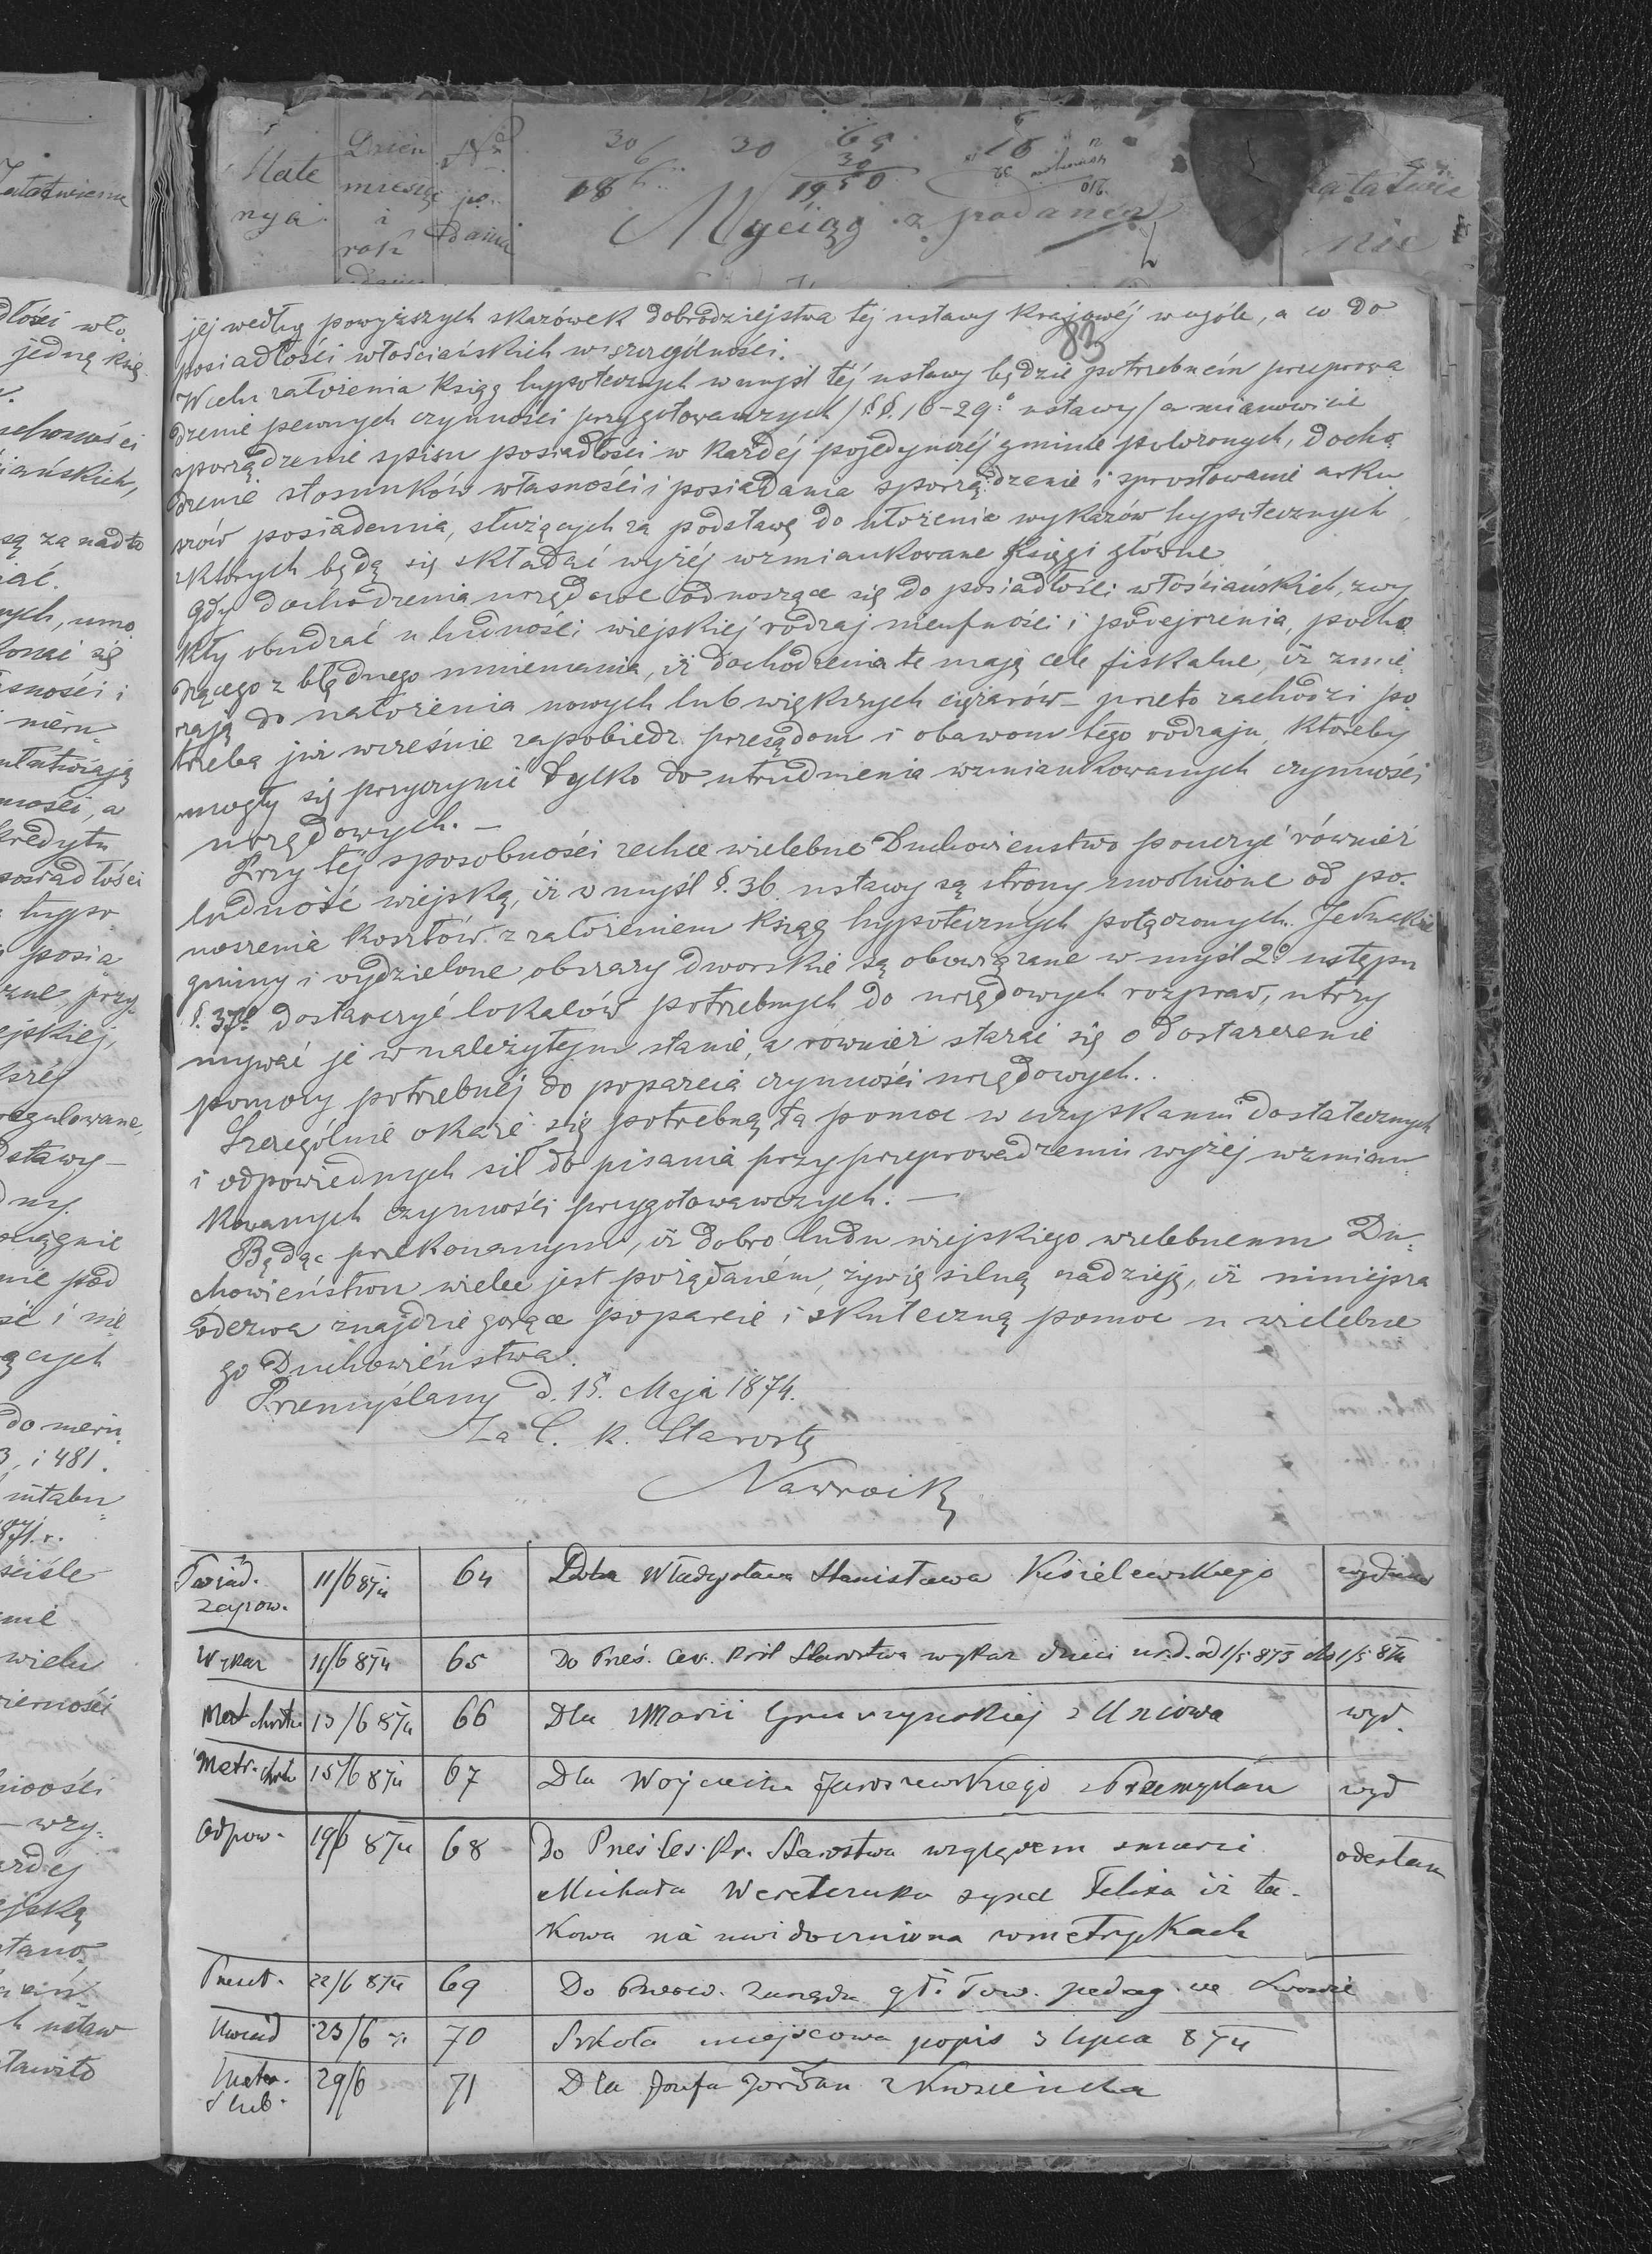 Mate
nya
Dzień
miesiąc
i
rok
No
po
dania
30
6
30
65
30
18
1950
16
Wyciąg z podania
atatwie
nie
83
jej według powyższych skazówek dobrodziejstwa tej ustawy krajowéj w ogóle, a co do
posiadłości włościańskich w szczególności.
W celu założenia ksiąg hypotecznych w myśl téj ustawy będzie potrzebném przeprowa
dzenie pewnych czynności przygotowawczych /§.§. 16-29. ustawy/ a mianowicie
sporządzenie spisu posiadłości w każdéj pojedynczéj gminie położonych, docho
dzenie stosunków własności i posiadania sporządzenie i sprostowanie arku
szów posiadania, służących za podstawę do ułożenia wykazów hypotecznych
z których będą się składać wyżéj wzmiankowane Księgi główne.
Gdy dochodzenia urzędowe odnoszące się do posiadłości włościańskich, zwy
kły obudzać u ludności wiejskiéj rodzaj nieufności i podejrzenia, pocho
dzącego z błędnego mniemania, iż dochodzenia te mają cele fiskalne, iż zmie
rzają do nałożenia nowych lub większych ciężarów – przeto zachodzi po
trzeba już wcześnie zapobiedz przesądom i obawom tego rodzaju, któreby
mogły się przyczynić tylko do utrudnienia wzmiankowanych czynności
urzędowych. –
Przy téj sposobności zechce wielebne Duchowieństwo pouczyć również
ludność wiejską, iż w myśl §. 36. ustawy są strony uwolnione od po
noszenia kosztów z założeniem ksiąg hypotecznych połączonych. Jednakże
gminy i wydzielone obszary dworskie są obowiązane w myśl 2go ustępu
§. 37go dostarczyć lokalów potrzebnych do urzędowych rozpraw, utrzy
mywać je w należytem stanie, a również starać się o dostarczenie
pomocy potrzebnéj do poparcia czynności urzędowych.
Szczególnie okaże się potrzebną ta pomoc w uzyskaniu dostatecznych
i odpowiednych sił do pisania przy przeprowadzeniu wyżej wzmian
kowanych czynności przygotowawczych. –
Będąc przekonanym, iż dobro ludu wiejskiego wielebnemu Du
chowieństwu wielce jest pożądaném, żywię silną nadzieję, iż niniejsza
odezwa znajdzie gorące poparcie i skuteczną pomoc u wielebne
go Duchowieństwa.
Przemyślany d. 15. Maja 1874.
Za C. k. Starostę
Nawrocki
Świad.
zapow. 11/6 874 64 Dla Władysława Stanisława Kisielewskiego wydano
Wykaz 11/6 874 65 Do Prześ. Ces. Król Starostwa wykaz dzieci ur.d. od 1/5 873 do 1/5 874
Met chrztu 13/6 874 66 Dla Marii Gruszyńskiej z Uniowa wyd.
Metr. chrtu 15/6 874 67 Dla Wojciecha Jaroszewskiego z Przemyślan wyd
Odpow. 19/6 874 68 Do Prześ Ces. Kr. Starostwa względem śmierci odesłan
Michała Wereteruka syna Felixa iż ta-
kowa nie uwidoczniona w metrykach
Przest. 22/6 874 69 Do Przew. Zarządu gł. Tow. pedag. we Lwowie
Uwiad 23/6 70 Szkoła miejscowa popis 3 lipca 874
Metr.
Slub. 29/6 71 Dla Józefa Jordan